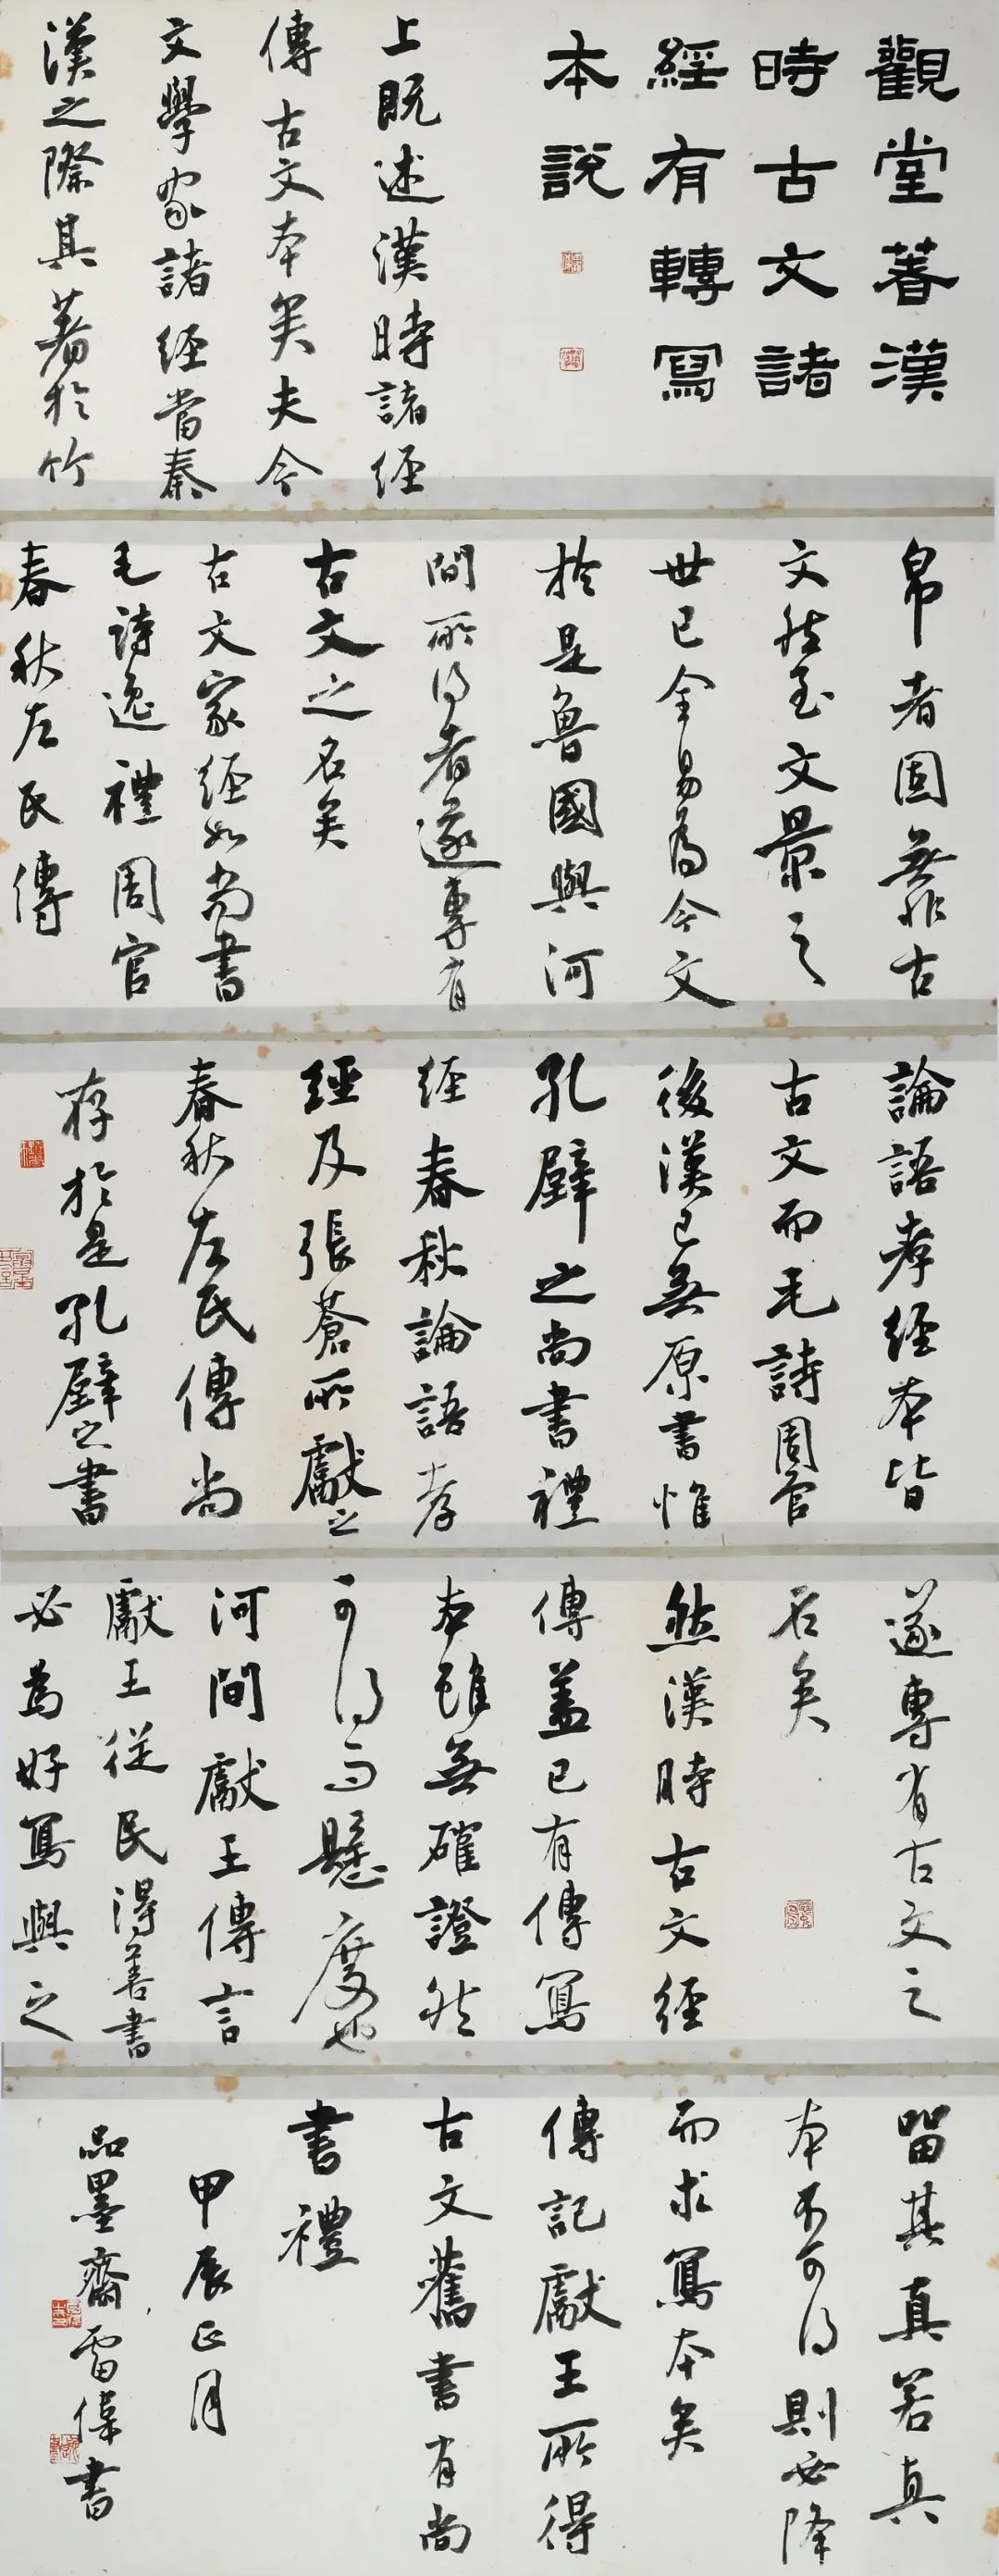 觀堂著漢
時古文諸
經有轉寫
本說
上既述漢時諸經
傳古文本矣夫今
文學家諸經當秦
漢之際其著於竹
帛者固無非古
文然至文景之
世已全易為今文
於是魯國與河
間所得者遂專有
古文之名矣
古文家經如尚書
毛詩逸禮周官
春秋左氏傳
論語孝經本皆
古文而毛詩周官
後漢已無原書惟
孔壁之尚書禮
經春秋論語孝
經及張蒼所獻之
春秋左氏傳尚
存於是孔壁之書
遂專有古文之
名矣
然漢時古文經
傳蓋已有傳寫
本雖無確證然
可得而懸度也
河間獻王傳言
獻王從民得善書
必為好寫與之
留其真若真
本不可得則必降
而求寫本矣
傳記獻王所得
古文舊書有尚
書禮
甲辰正月
品墨齋雷偉書